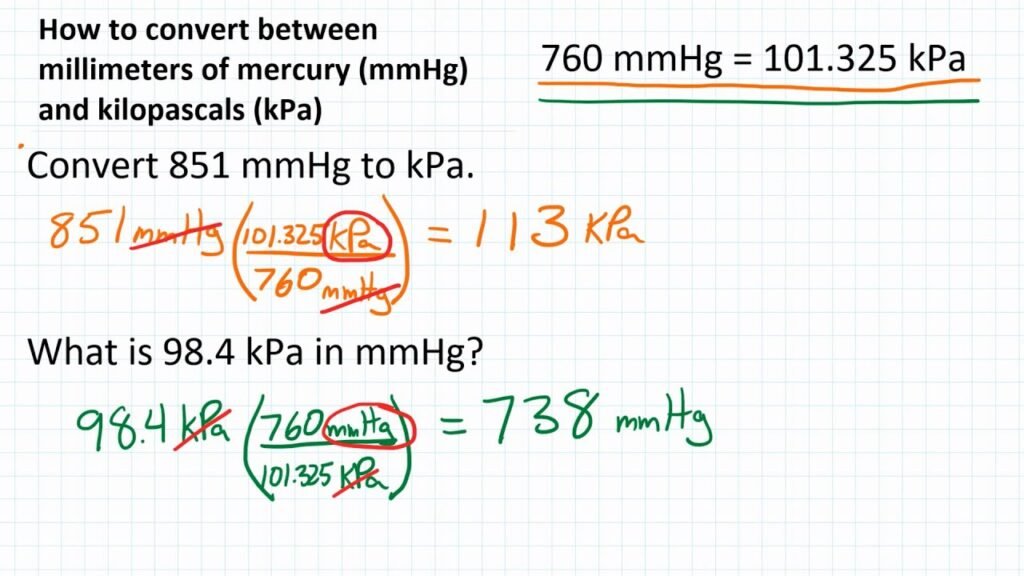 How to convert between
millimeters of mercury (mmHg)
and kilopascals (kPa)
760 mmHg = 101.325 kPa
Convert 851 mmHg to kPa.
851 mmHg (101.325 kPa / 760 mmHg) = 113 kPa
What is 98.4 kPa in mmHg?
98.4 kPa (760 mmHg / 101.325 kPa) = 738 mmHg